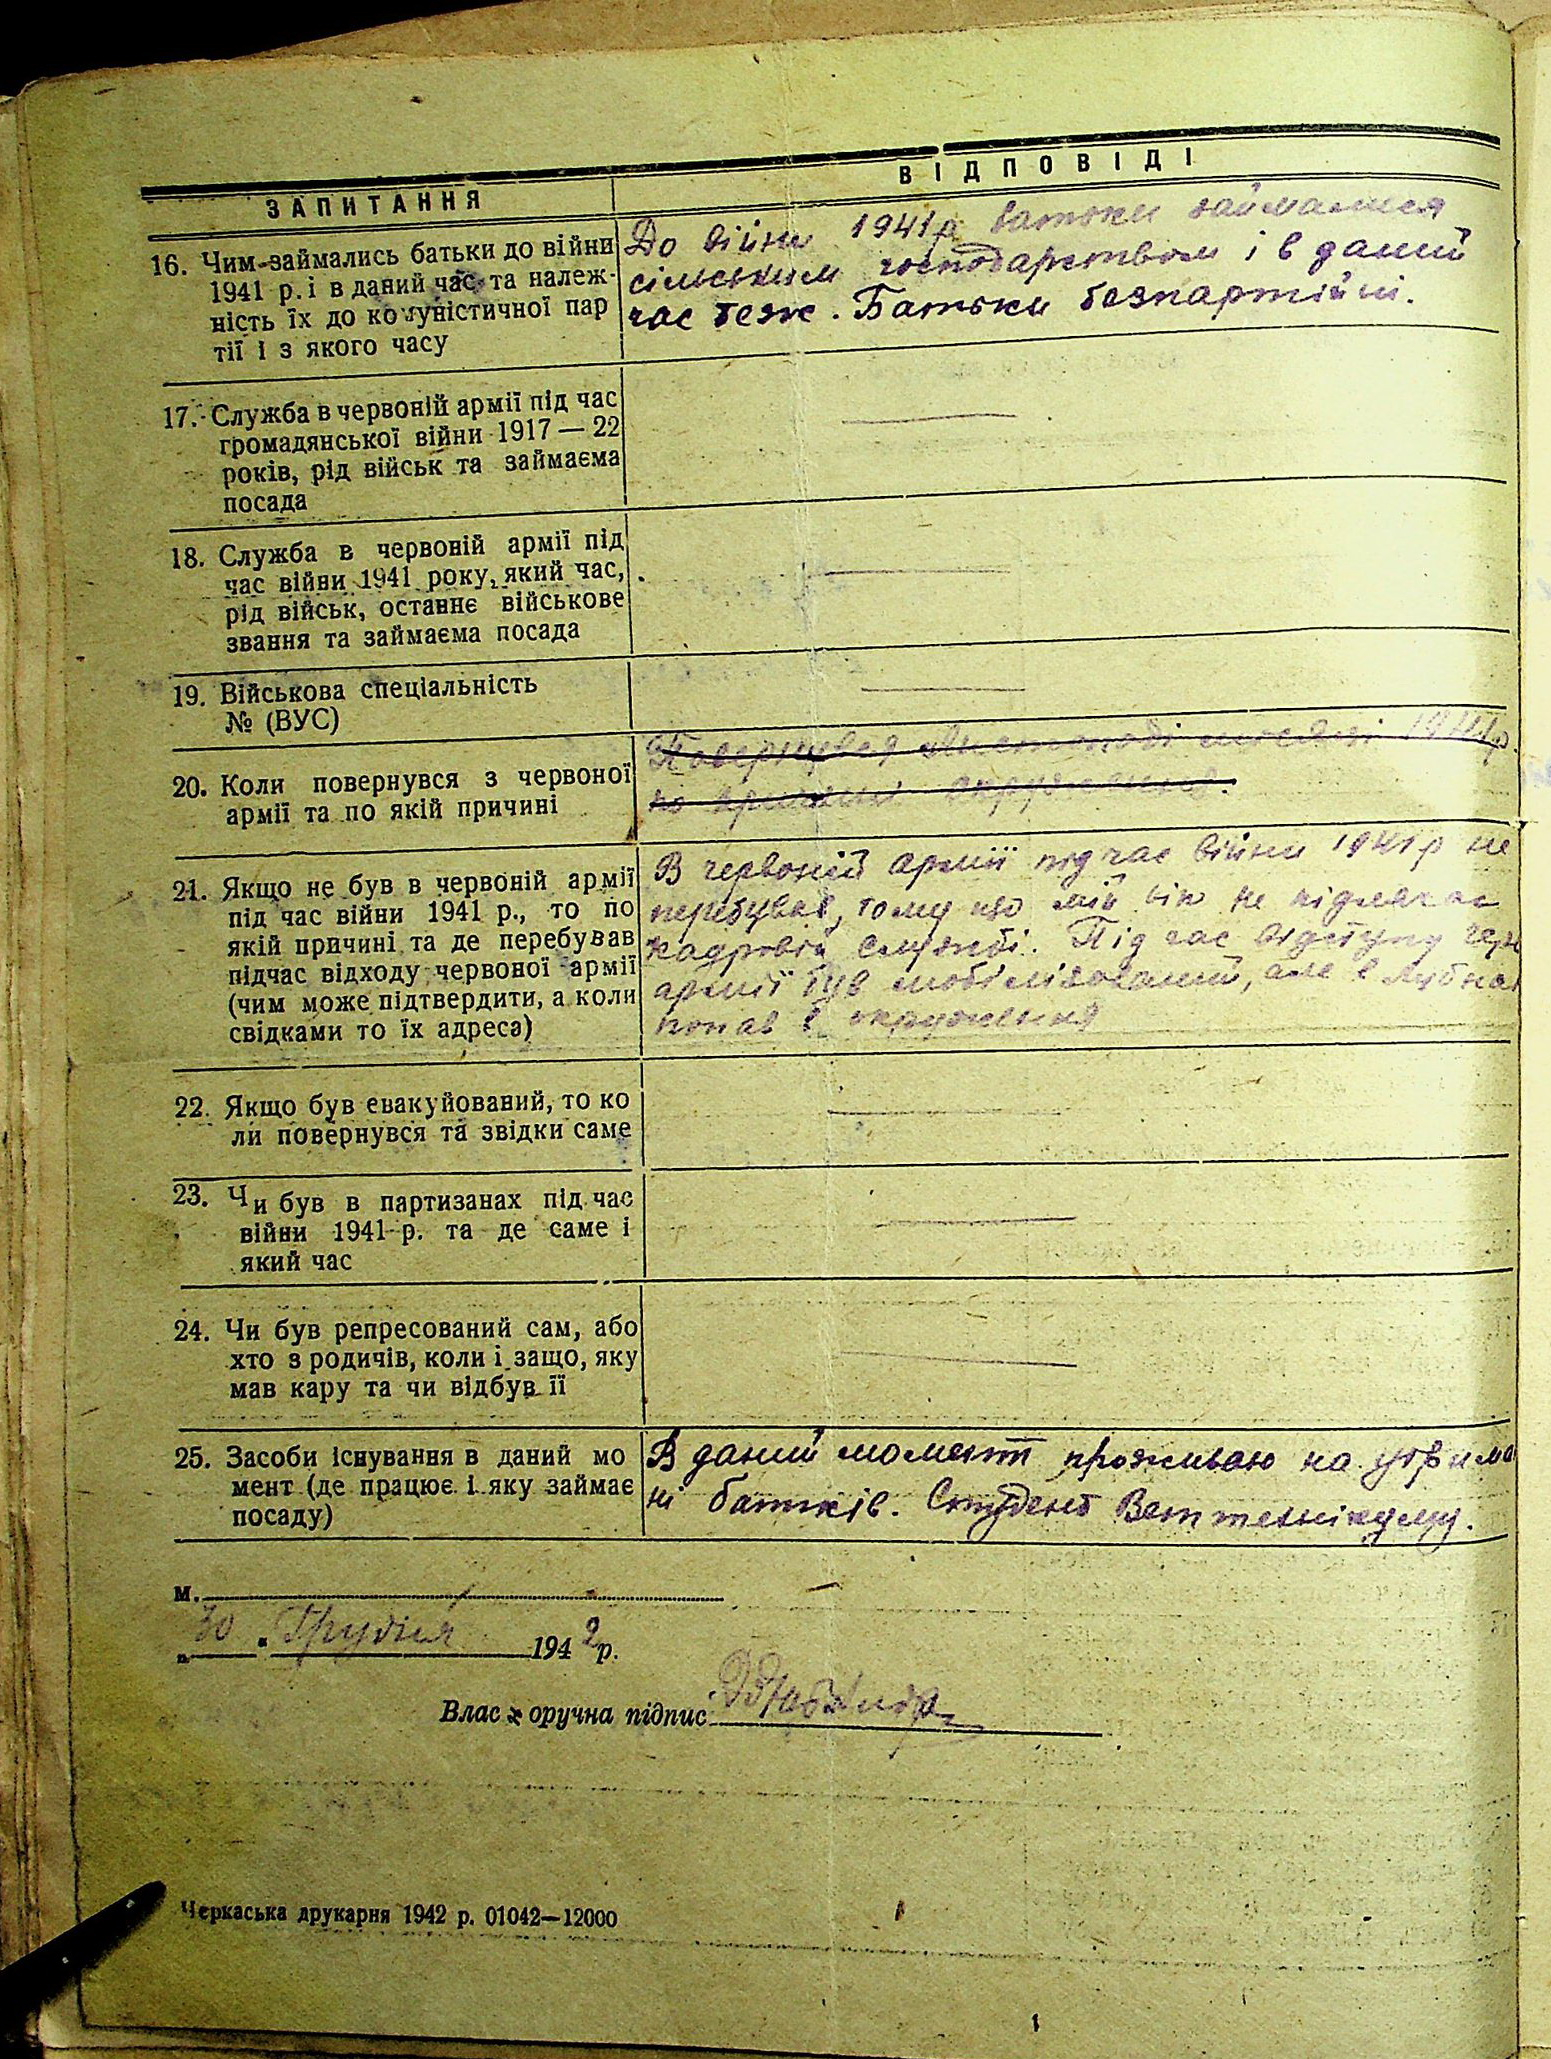 ЗАПИТАННЯ
ВІДПОВІДІ
16. Чим займались батьки до війни
1941 р. і в даний час та належ-
ність їх до комуністичної пар
тії і з якого часу
До війни 1941р батьки займалися
сільським господарством і в даний
час теж. Батьки безпартійні.
17. Служба в червоній армії під час
громадянської війни 1917 — 22
років, рід військ та займаєма
посада
18. Служба в червоній армії під
час війни 1941 року, який час,
рід військ, останнє військове
звання та займаєма посада
19. Військова спеціальність
№ (ВУС)
20. Коли повернувся з червоної
армії та по якій причині
Повернувся Листопаді місяці 1941р.
по причині окруження.
21. Якщо не був в червоній армії
під час війни 1941 р., то по
якій причині та де перебував
підчас відходу червоної армії
(чим може підтвердити, а коли
свідками то їх адреса)
В червоній армії під час війни 1941р не
перебував, тому що мій вік не підлягав
кадровій службі. Під час відступу черв
армії був мобілізований, але в Лубнах
попав в окруження
22. Якщо був евакуйований, то ко
ли повернувся та звідки саме
23. Чи був в партизанах під час
війни 1941 р. та де саме і
який час
24. Чи був репресований сам, або
хто з родичів, коли і защо, яку
мав кару та чи відбув її
25. Засоби існування в даний мо
мент (де працює і яку займає
посаду)
В даний момент проживаю на утрима
ні батьків. Студент Веттехнікуму.
м.
„30“ Грудня 1942р.
Влас оручна підпис
Черкаська друкарня 1942 р. 01042—12000